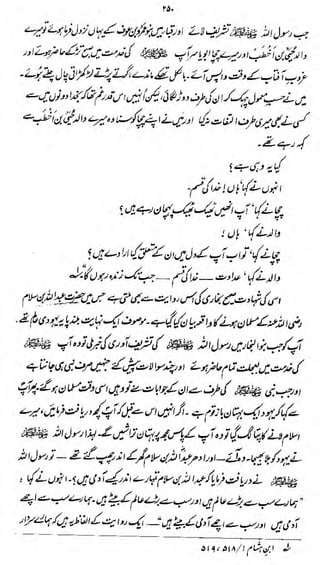 ۲۵۰
جب رسول اللہ ﷺ تشریف لائے اور قباء میں بنو عمرو بن عوف کے یہاں نزول فرما ہوئے تو میرے
والد حیی بن اخطب اور میرے چچا ابو یاسر آپ ﷺ کی خدمت میں صبح تڑکے حاضر ہوئے اور
غروب آفتاب کے وقت واپس آئے۔ بالکل تھکے ماندے، گرتے پڑتے لڑکھڑاتی چال چلتے ہوئے۔
میں نے حسب معمول چہک کر ان کی طرف دوڑ لگائی، لیکن انہیں اس قدر غم تھا کہ بخدا دونوں میں سے
کسی نے بھی میری طرف التفات نہ کیا اور میں نے اپنے چچا کو سنا وہ میرے والد حیی بن اخطب سے
کہہ رہے تھے۔
کیا یہ وہی ہے؟
انہوں نے کہا، ہاں! خدا کی قسم۔
چچا نے کہا، آپ انھیں ٹھیک ٹھیک پہچان رہے ہیں؟
والد نے کہا، ہاں!
چچا نے کہا، تو اب آپ کے دل میں ان کے متعلق کیا ارادے ہیں؟
والد نے کہا، عداوت ـــ خدا کی قسم ـــ جب تک زندہ رہوں گا۔
اسی کی شہادت صحیح بخاری کی اس روایت سے بھی ملتی ہے جس میں حضرت عبداللہ بن سلام
رضی اللہ عنہ کے مسلمان ہونے کا واقعہ بیان کیا گیا ہے۔ موصوف ایک نہایت بلند پایہ یہودی عالم تھے۔
آپ کو جب بنو النجار میں رسول اللہ ﷺ کی تشریف آوری کی خبر ملی تو وہ آپ ﷺ
کی خدمت میں بعجلت تمام حاضر ہوئے اور چند سوالات پیش کئے جنہیں صرف نبی ہی جانتا ہے
اور جب نبی ﷺ کی طرف سے ان کے جوابات سنے تو وہیں اسی وقت مسلمان ہو گئے، پھر آپ
سے کہا کہ یہود ایک بہتان باز قوم ہے۔ اگر انہیں اس سے قبل کہ آپ کچھ دریافت فرمائیں، میرے
اسلام لانے کا پتا لگ گیا تو وہ آپ کے پاس مجھ پر بہتان تراشیں گے۔ لہذا رسول اللہ ﷺ
نے یہود کو بلا بھیجا۔ وہ آئے ـــ اور ادھر عبداللہ بن سلام گھر کے اندر چھپ گئے تھے ـــ تو رسول اللہ
ﷺ نے دریافت فرمایا کہ عبداللہ بن سلام تمہارے اندر کیسے آدمی ہیں؟ انہوں نے کہا:
"ہمارے سب سے بڑے عالم ہیں اور سب سے بڑے عالم کے بیٹے ہیں۔ ہمارے سب سے اچھے
آدمی ہیں اور سب سے اچھے آدمی کے بیٹے ہیں"ـــ ایک روایت کے الفاظ یہ ہیں کہ ہمارے سردار
ابن ہشام ۱/ ۵۱۸، ۵۱۹